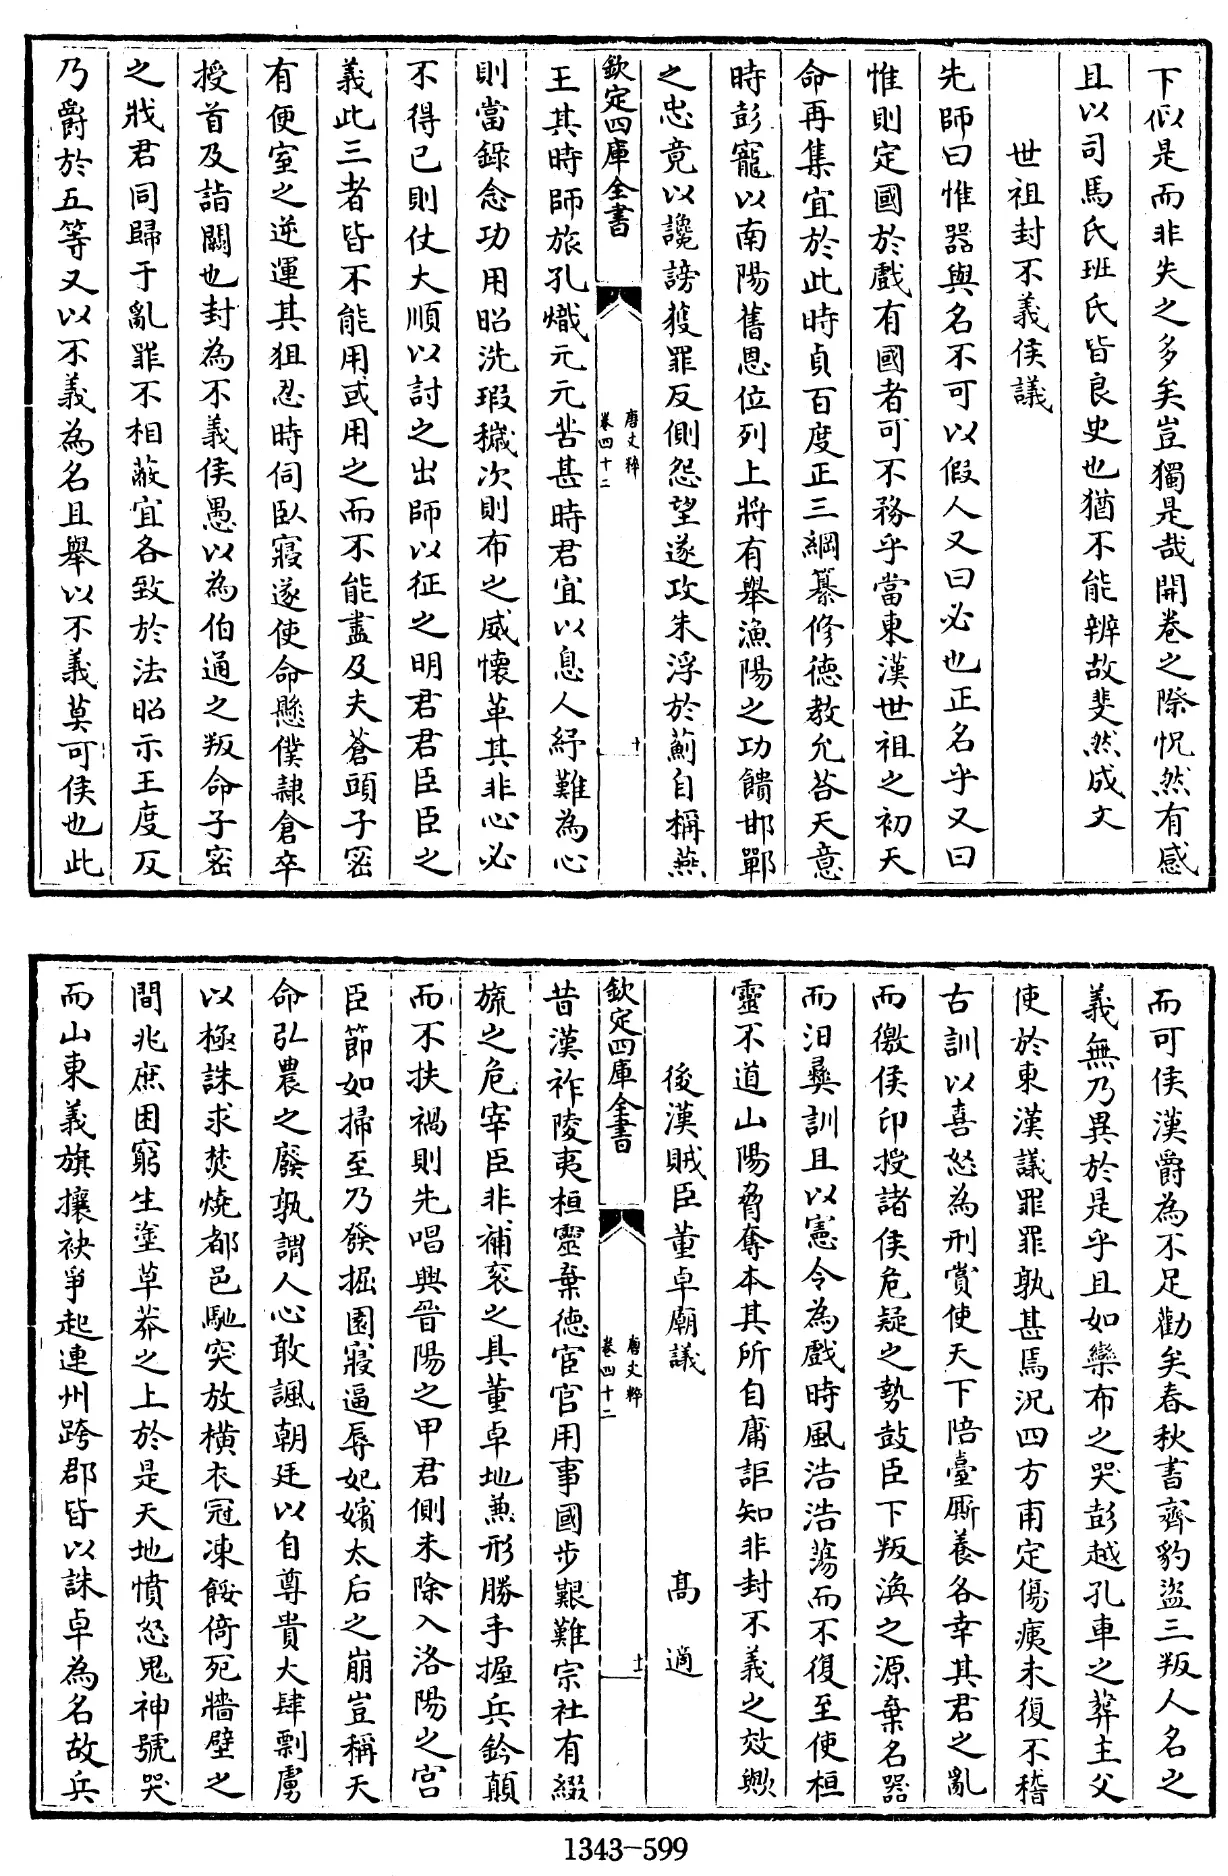 下似是而非失之多矣豈獨是哉開卷之際怳然有感
且以司馬氏班氏皆良史也猶不能辨故斐然成文
世祖封不義侯議
先師曰惟器與名不可以假人又曰必也正名乎又曰
惟則定國於戲有國者可不務乎當東漢世祖之初天
命再集宜於此時貞百度正三綱纂修德教允荅天意
時彭寵以南陽舊恩位列上將有舉漁陽之功饋邯鄲
之忠竟以讒謗獲罪反側怨望遂攻朱浮於薊自稱燕
欽定四庫全書
唐文粹
卷四十二
十
王其時師旅孔熾元元苦甚時君宜以息人紓難為心
則當錄念功用昭洗瑕穢次則布之威懷革其非心必
不得已則仗大順以討之出師以征之明君君臣臣之
義此三者皆不能用或用之而不能盡及夫蒼頭子密
有便室之逆運其狙忍時伺臥寢遂使命懸僕隷倉卒
授首及詣闕也封為不義侯愚以為伯通之叛命子密
之戕君同歸于亂罪不相蔽宜各致於法昭示王度反
乃爵於五等又以不義為名且舉以不義莫可侯也此
而可侯漢爵為不足勸矣春秋書齊豹盜三叛人名之
義無乃異於是乎且如欒布之哭彭越孔車之葬主父
使於東漢議罪罪孰甚焉況四方甫定傷痍未復不稽
古訓以喜怒為刑賞使天下陪臺厮養各幸其君之亂
而徼侯印授諸侯危疑之勢鼓臣下叛渙之源棄名器
而汨彝訓且以憲令為戲時風浩浩蕩而不復至使桓
靈不道山陽脅奪本其所自庸詎知非封不義之效歟
後漢賊臣董卓廟議
高適
欽定四庫全書
唐文粹
卷四十二
十一
昔漢祚陵夷桓靈棄德宦官用事國步艱難宗社有綴
旒之危宰臣非補衮之具董卓地兼形勝手握兵鈐顛
而不扶禍則先唱興晉陽之甲君側未除入洛陽之宮
臣節如掃至乃發掘園寢逼辱妃嬪太后之崩豈稱天
命弘農之廢孰謂人心敢諷朝廷以自尊貴大肆剽虜
以極誅求焚燒都邑馳突放橫衣冠凍餒倚死牆壁之
間兆庶困窮生塗草莽之上於是天地憤怒鬼神號哭
而山東義旗攘袂爭起連州跨郡皆以誅卓為名故兵
1343-599